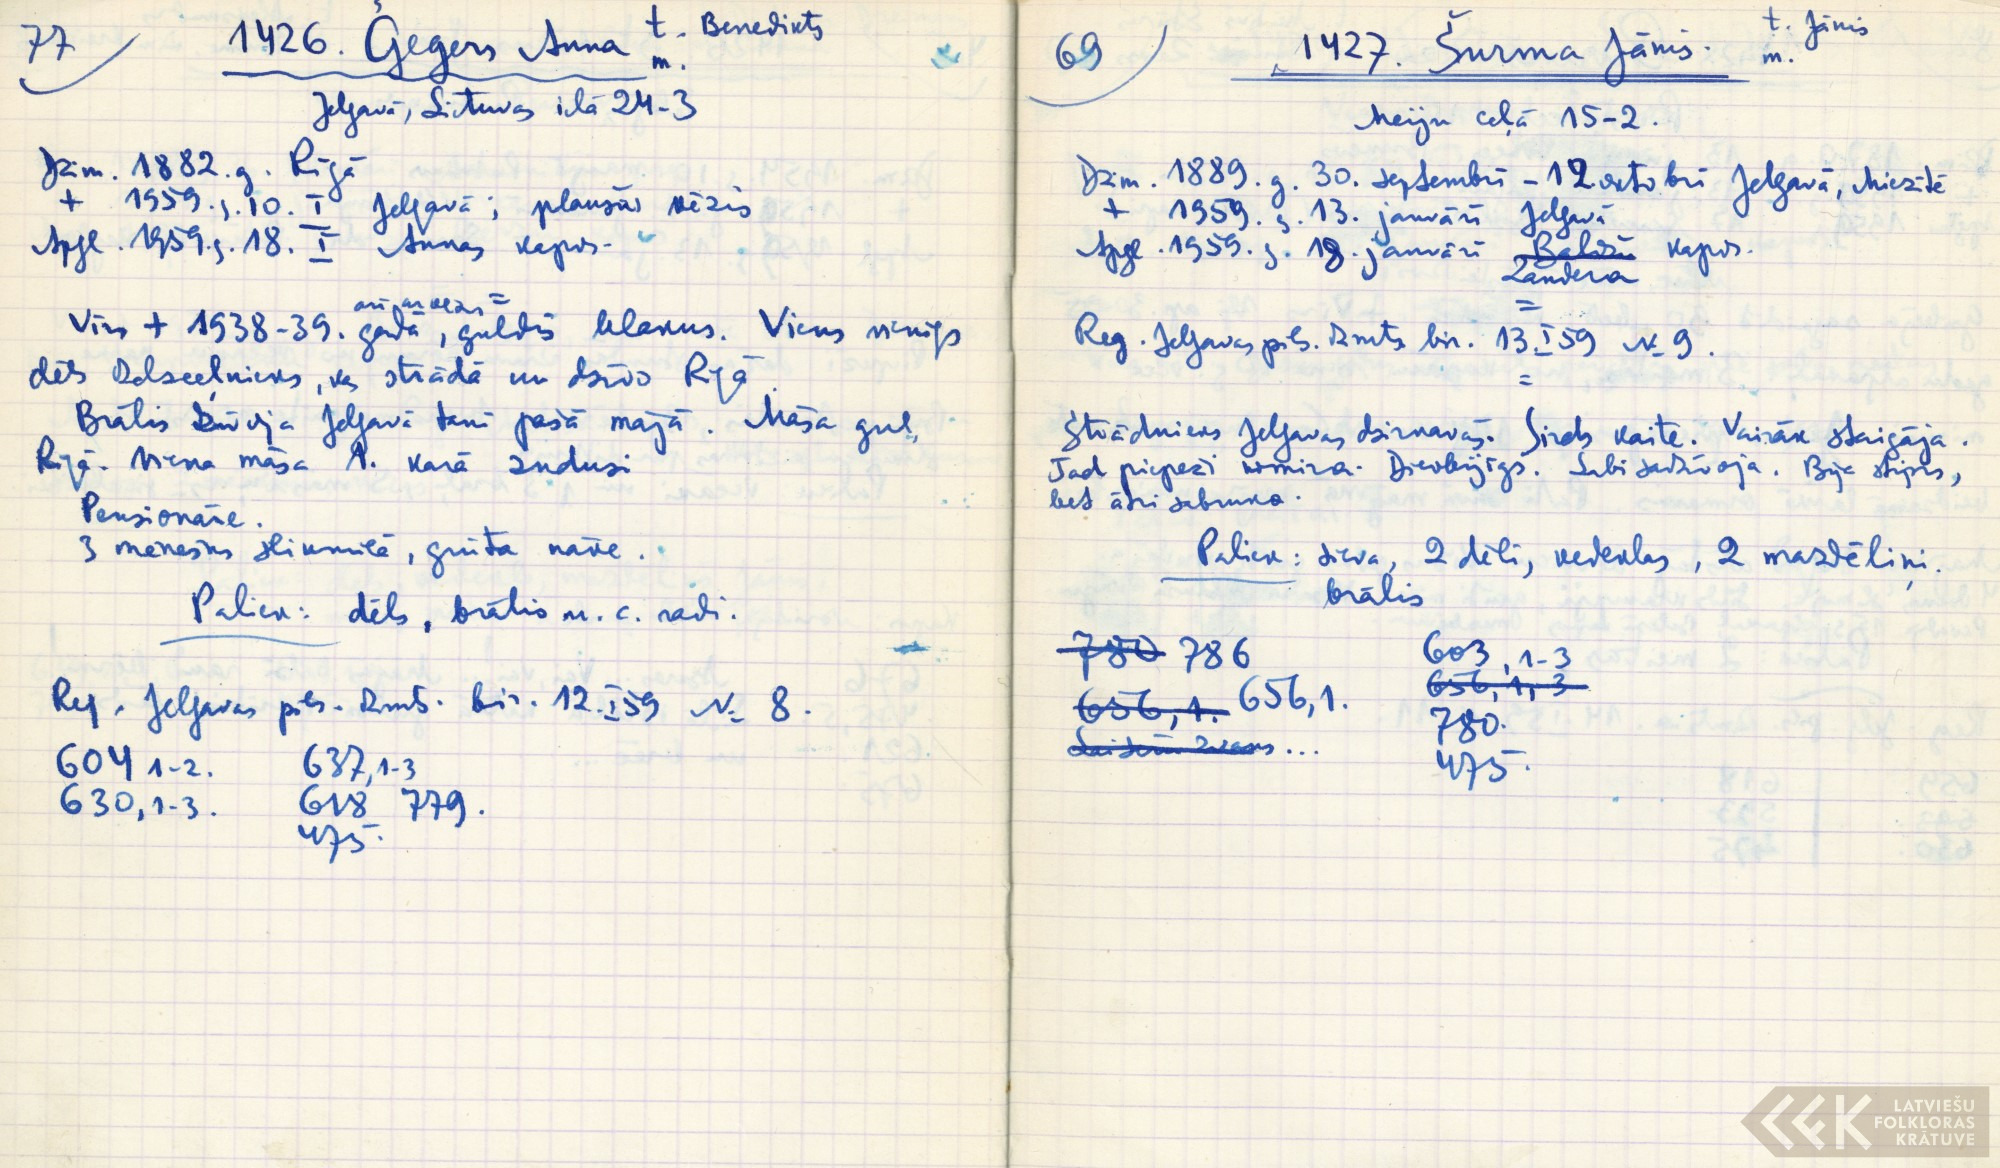 77
1426. Ģēgers Anna t. Benedikts
m.
Jelgavā, Lietuvas ielā 24-3
Dzim. 1882. g. Rīgā
+ 1959. g. 10. I Jelgavā; plaušu vēzis
Apgl. 1959. g. 18. I Annas kapos.
arī ar vēzi =
Vīrs + 1938-39. gadā, guldīs blakus. Viens vienīgs
dēls dzelzceļnieks, kas strādā un dzīvo Rīgā.
Brālis dzīvoja Jelgavā tanī pašā mājā. Māsa guļ
Rīgā. Viena māsa 1. karā zudusi
Pensionāre.
3 mēnešus slimnīcā, grūta nāve.
Paliek: dēls, brālis u. c. radi.
Reģ. Jelgavas pils. Dzmts. bir. 12. I 59 № 8.
604 1-2. 637, 1-3
630, 1-3. 618 779.
475.
69
1427. Šurma Jānis. t. Jānis
m.
Meiju ceļā 15-2.
Dzim. 1889. g. 30. septembrī - 12. oktobrī Jelgavā, Miezītē
+ 1959. g. 13. janvārī Jelgavā
Apgl. 1959. g. 18. janvārī Baložu kapos.
Zandera
=
Reģ. Jelgavas pils. Dzmts bir. 13. I 59 № 9.
=
Strādnieks Jelgavas dzirnavās. Sirds kaite. Vairāk staigāja.
Tad piepeži nomira. Dievbijīgs. Labi sadzīvoja. Bija stiprs,
bet ātri sabruka.
Paliek: sieva, 2 dēli, vedeklas, 2 mazdēliņi.
brālis
780 786 603, 1-3
656, 1. 656, 1. 656, 1, 3
780.
475.
LATVIEŠU
FOLKLORAS
KRĀTUVE